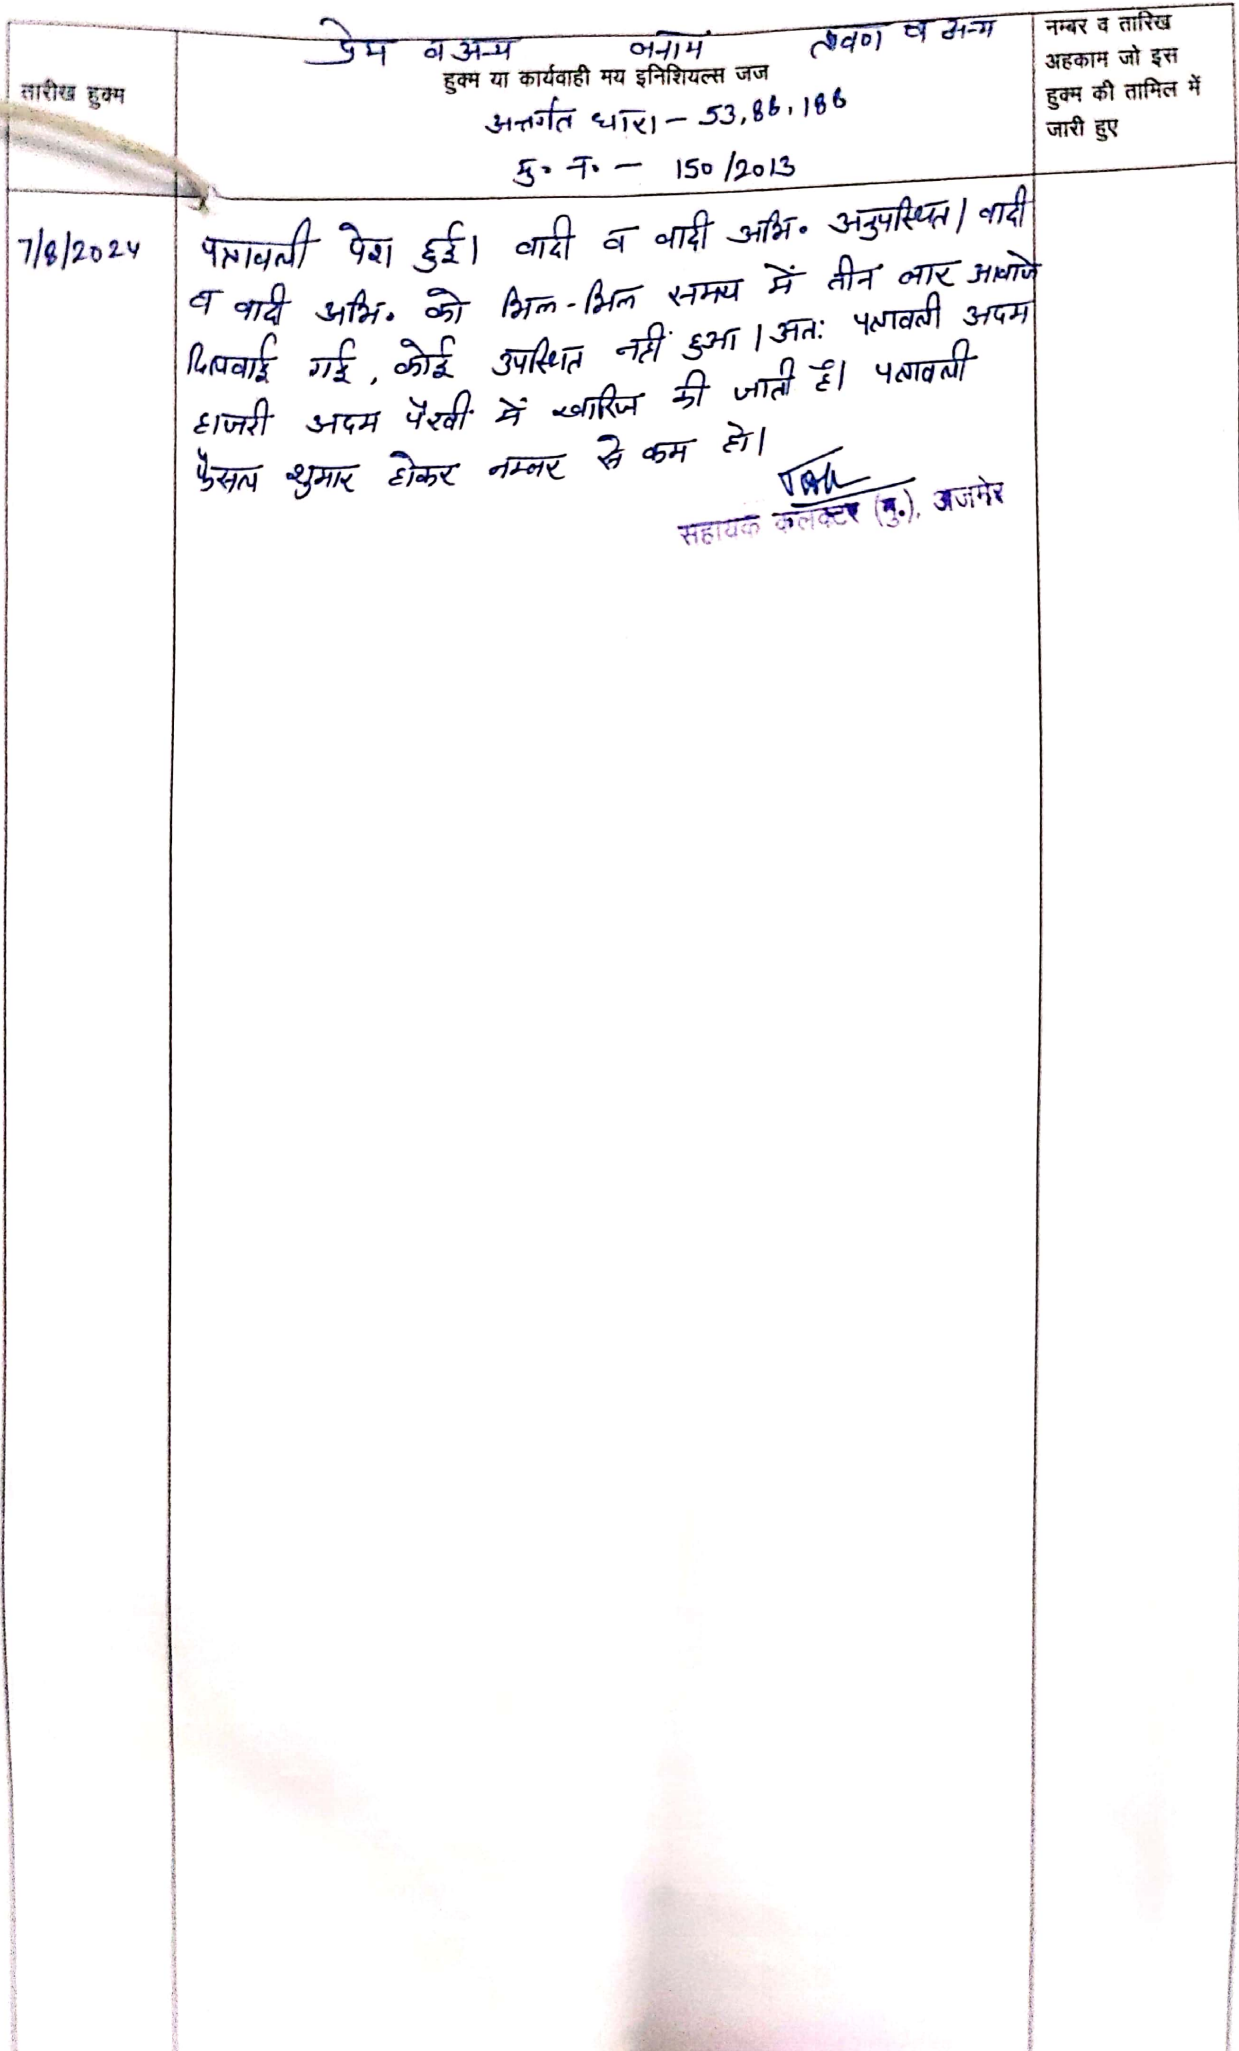 प्रेम व अन्य बनाम लवण व अन्य
तारीख हुक्म
हुक्म या कार्यवाही मय इनिशियल्स जज
अन्तर्गत धारा - 53,88,188
मु. न. - 150/2013
नम्बर व तारिख
अहकाम जो इस
हुक्म की तामिल में
जारी हुए
7/8/2024
पत्रावली पेश हुई। वादी व वादी अभि. अनुपस्थित। वादी
व वादी अभि. को भिन्न-भिन्न समय में तीन बार आवाजे
दिलवाई गई, कोई उपस्थित नहीं हुआ। अतः पत्रावली अदम
हाजरी अदम पैरवी में खारिज की जाती है। पत्रावली
फैसल शुमार होकर नम्बर से कम हो।
सहायक कलक्टर (मु.), अजमेर